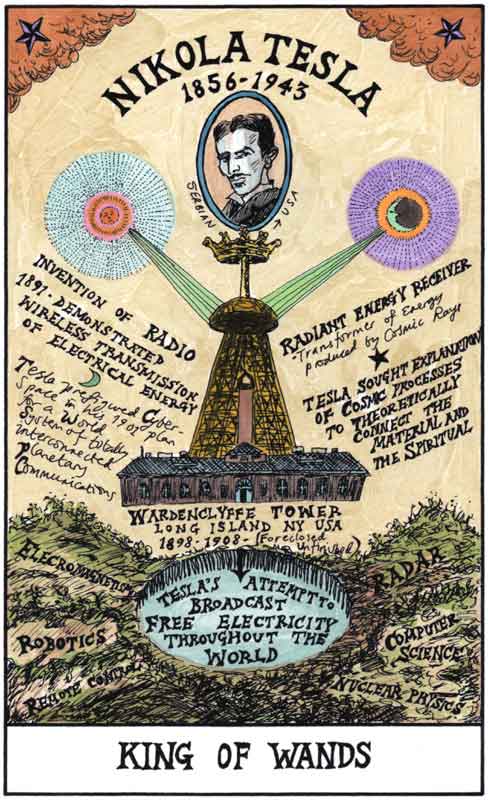 NIKOLA TESLA
1856-1943
SERBIAN
USA
INVENTION OF RADIO
1891. DEMONSTRATED
WIRELESS TRANSMISSION
OF ELECTRICAL ENERGY
Tesla prefigured Cyber
Space in his 1901 plan
for a World
System of totally
interconnected
Planetary
Communications
RADIANT ENERGY RECEIVER
"Transformer of Energy
produced by Cosmic Rays
TESLA SOUGHT EXPLANATION
OF COSMIC PROCESSES
TO THEORETICALLY
CONNECT THE
MATERIAL AND
THE SPIRITUAL
WARDENCLYFFE TOWER
LONG ISLAND NY USA
1898-1908-(Foreclosed
Unfinished)
ELECROMAGNETISM
ROBOTICS
REMOTE CONTROL
TESLA'S ATTEMPT TO
BROADCAST
FREE ELECTRICITY
THROUGHOUT THE
WORLD
RADAR
COMPUTER
SCIENCE
NUCLEAR PHYSICS
KING OF WANDS